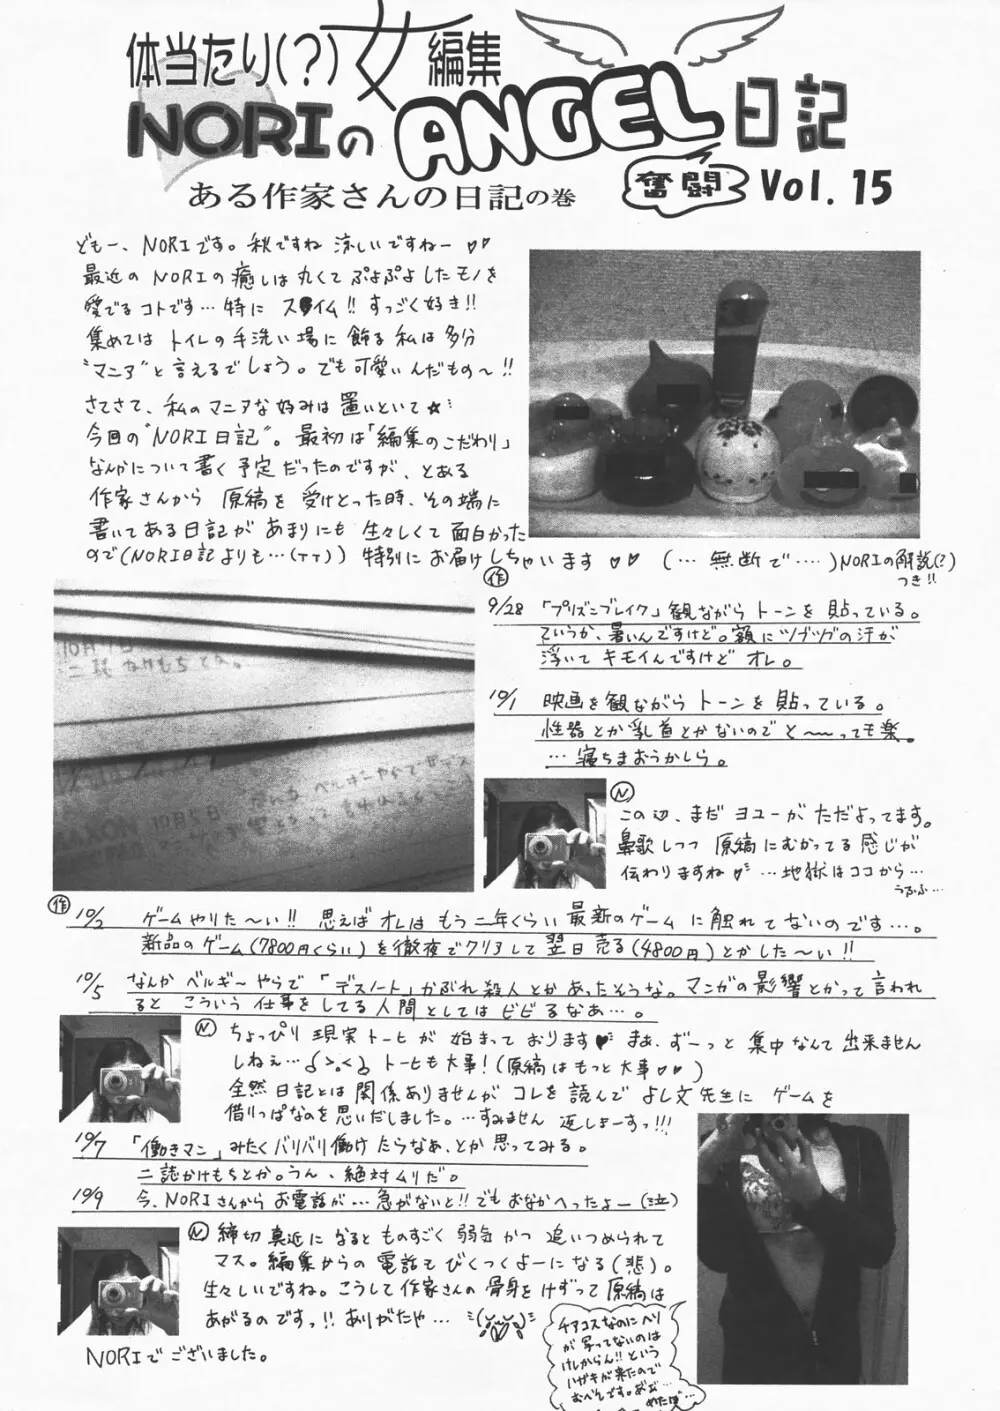 体当たり(?)女編集
NORIのANGEL日記
奮闘 Vol. 15
ある作家さんの日記の巻
どもー、NORIです。秋ですね 涼しいですねー♡♡
最近の NORIの癒しは丸くて ぷよぷよしたモノを
愛でるコトです…特に ス●イム!! すっごく好き!!
集めては トイレの手洗い場に 飾る 私は 多分
"マニア"と言えるでしょう。でも可愛いんだもの〜!!
さてさて、私のマニアな好みは 置いといて☆
今回の"NORI日記"。最初は「編集のこだわり」
なんかについて書く予定だったのですが、とある
作家さんから 原稿を 受けとった時、その端に
書いてある日記が あまりにも 生々しくて 面白かった
ので(NORI日記よりも…(TT)) 特別に お届けしちゃいます ♡♡ (… 無断で ‥‥)NORIの解説(?)
つき!!
作
9/28 「プリズンブレイク」観ながら トーンを 貼っている。
ていうか、暑いんですけど。額に ツブツブの汗が
浮いて キモイんですけど オレ。
10/1 映画を観ながら トーンを 貼っている。
性器とか乳首とかないので と〜〜っても楽。
… 寝ちまおうかしら。
10月7日
二誌かけもちとか。
なんか ベルギーやらで デス
MAXON 10月5日
N
この辺、まだ ヨユーが ただよってます。
鼻歌しつつ 原稿にむかってる 感じが
伝わりますね♡ … 地獄は ココから…
うふふ…
作
10/2 ゲームやりた〜い!! 思えば オレは もう二年くらい 最新のゲームに触れてないのです…。
新品のゲーム(7800円くらい)を徹夜でクリアして 翌日 売る(4800円)とかした〜い!!
10/5 なんか ベルギーやらで 「デスノート」かぶれ殺人とか あったそうな。マンガの影響とかって言われ
ると こういう 仕事を してる人間としては ビビるなぁ…。
N ちょっぴり 現実トーヒが 始まって おります♡ まぁ、ずーっと 集中なんて 出来ません
しねぇ… トーヒも大事!(原稿はもっと大事♡♡)
全然日記とは 関係ありませんが コレを 読んで よし文先生に ゲームを
借りっぱなのを思いだしました。…すみません 返しまーすっ!!!
10/7 「働きマン」みたく バリバリ働け たらなぁ、とか 思ってみる。
二誌かけもちとか。うん、絶対ムリだ。
10/9 今、NORIさんから お電話が… 急がないと!! でも おなかへったよー(泣)
N 締切 真近に なると ものすごく 弱気 かつ 追いつめられて
マス。編集からの 電話で びくつくよーになる(悲)。
生々しいですね。こうして 作家さんの 骨身を けずって 原稿は
あがるのですっ!! ありがたや…
NORIで ございました。
チアコスなのにヘソ
が 写ってないのは
けしからん!! という
ハガキが来たので